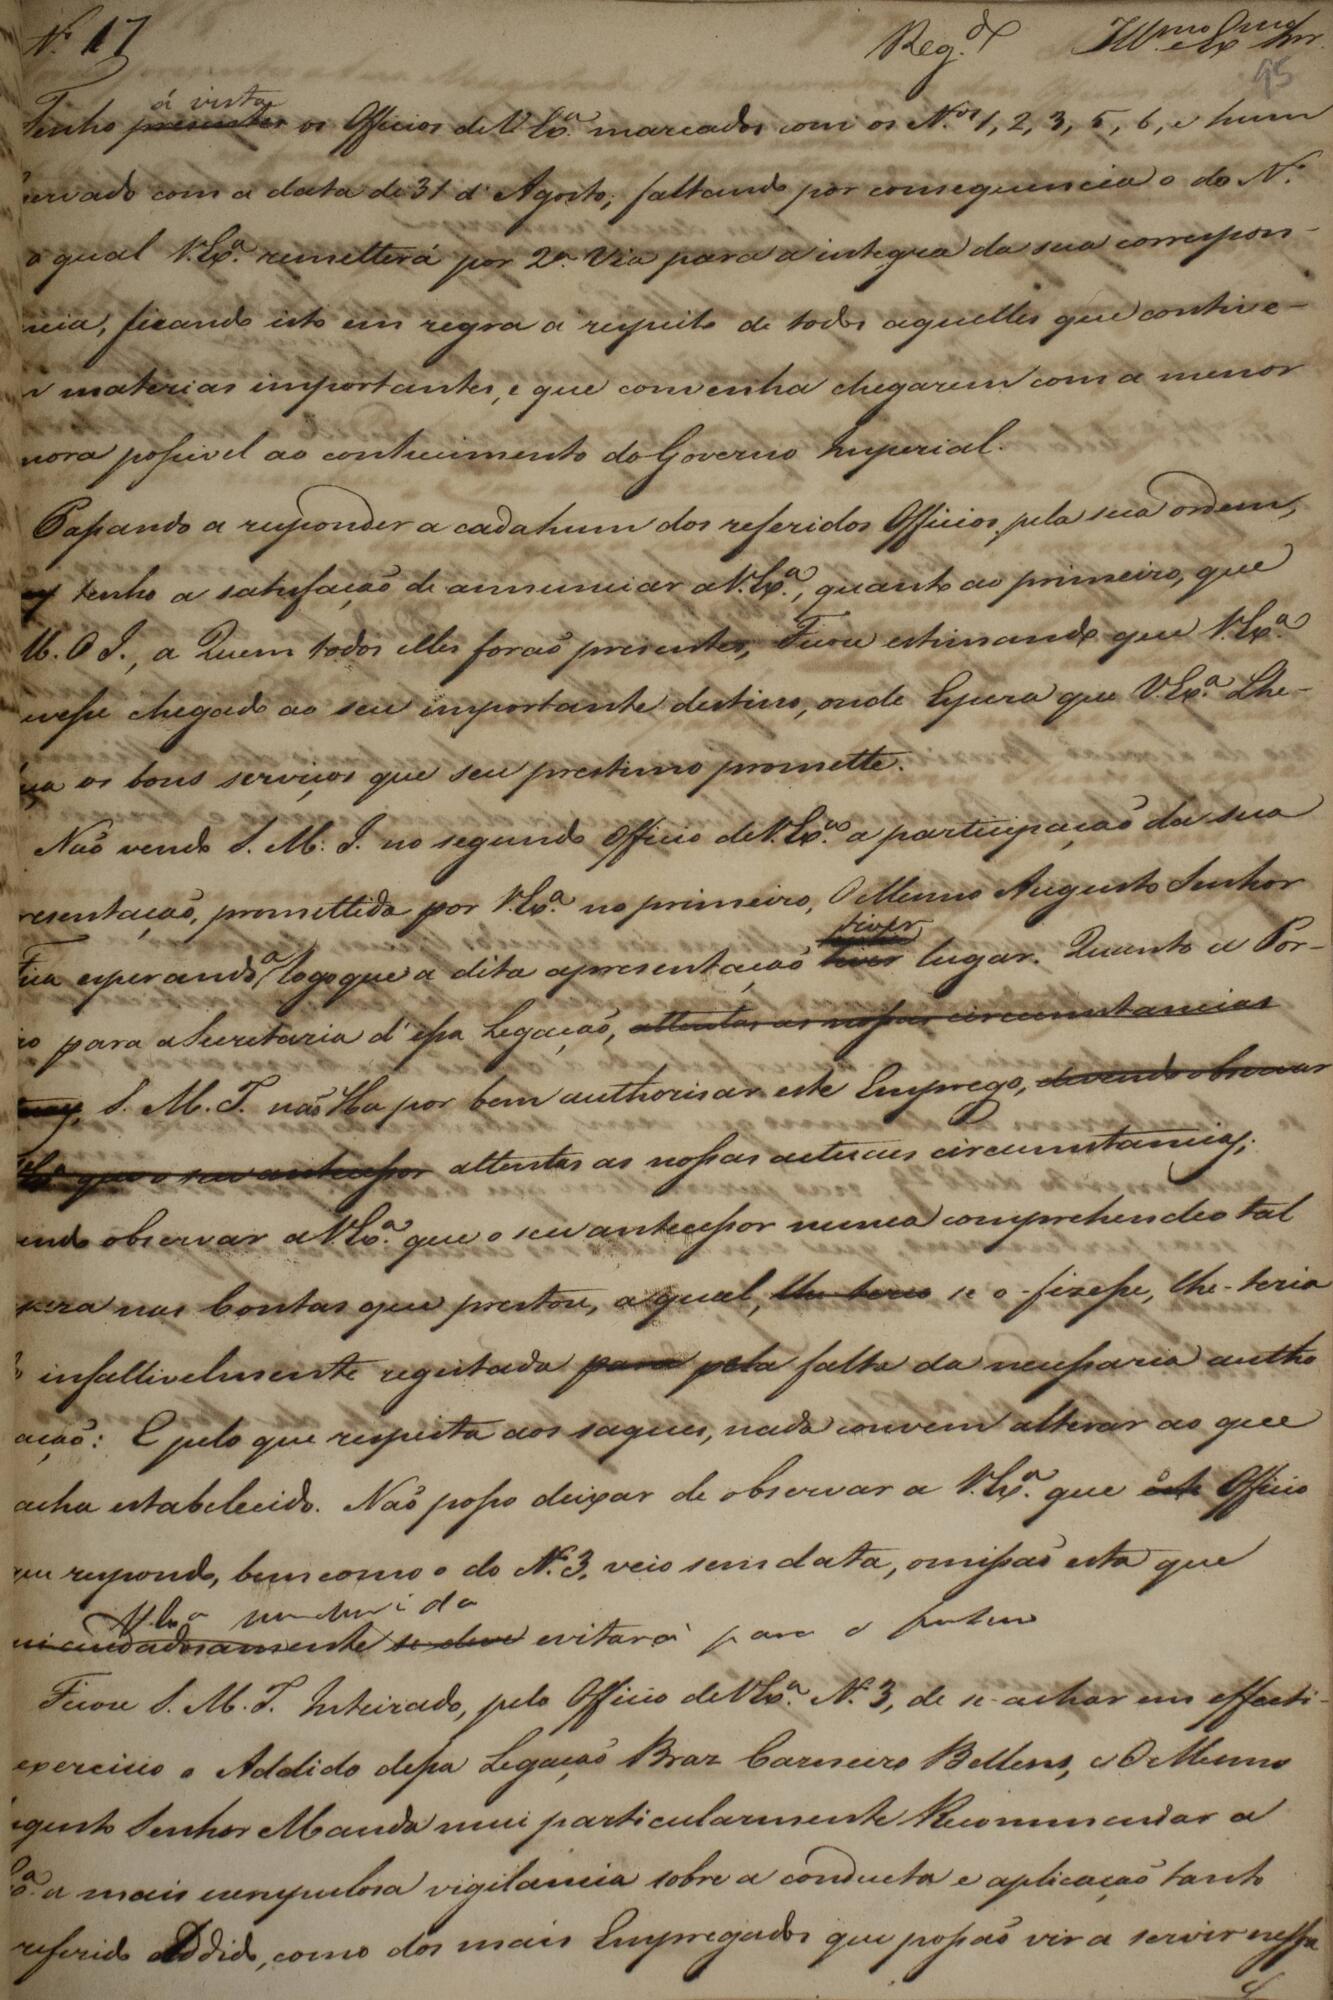 N.º 17 Reg.do Illmo e Exmo Snr.
95
á vista
Tenho presentes os Officios de V. Exª. marcados com os N.os 1, 2, 3, 5, 6, e hum
servado com a data de 31 d'Agosto; faltando por consequencia o do N.º
o qual V. Exª. remetterá por 2ª. Via para a integra da sua correspon-
ncia, ficando isto em regra a respeito de todos aquelles que contive-
m materias importantes, e que convenha chegarem com a menor
mora possivel ao conhecimento do Governo Imperial.
Passando a responder a cada hum dos referidos Officios, pela sua ordem,
tenho a satisfação de annunciar a V. Exª., quanto ao primeiro, que
M. O I., a Quem todos elles forão presentes, Ficou estimando que V. Exª.
vesse chegado ao seu importante destino, onde Espera que V. Exª. Lhe-
ça os bons serviços que seu prestimo promette.
Não vendo S. M. I. no segundo Officio de V. Exª. a participação da sua
resentação, promettida por V. Exª. no primeiro, O Mesmo Augusto Senhor
tiver
Fica esperando-a logo que a dita apresentação tiver lugar. Quanto a Por-
ro para a Secretaria d'essa Legação, attentas as nossas circumstancias
S. M. I. não Ha por bem authorisar este Emprego, devendo observar
que o seu antecessor attentas as nossas actuaes circumstancias;
endo observar a V. Exª. que o seu antecessor nunca comprehendeo tal
peza nas Contas que prestou, a qual, lhe teria se o-fizesse, lhe-teria
infallivelmente regeitada para pela falta da necessaria autho
ação: E pelo que respeita aos saques, nada convem alterar ao que
acha estabelecido. Não posso deixar de observar a V. Exª. que este Officio
que respondo, bem como o do N.º 3, veio sem data, omissão esta que
V. Exª
cuidadosamente se deve evitará para o futuro
Ficou S. M. I. Inteirado, pelo Officio de V. Exª. N.º 3, de se-achar em effecti-
exercicio o Addido dessa Legação Braz Carneiro Bellens, e O Mesmo
ugusto Senhor Manda mui particularmente Recommendar a
Exª. a mais escrupulosa vigilancia sobre a conducta e aplicação tanto
referido Addido, como dos mais Empregados que possão vir a servir nessa